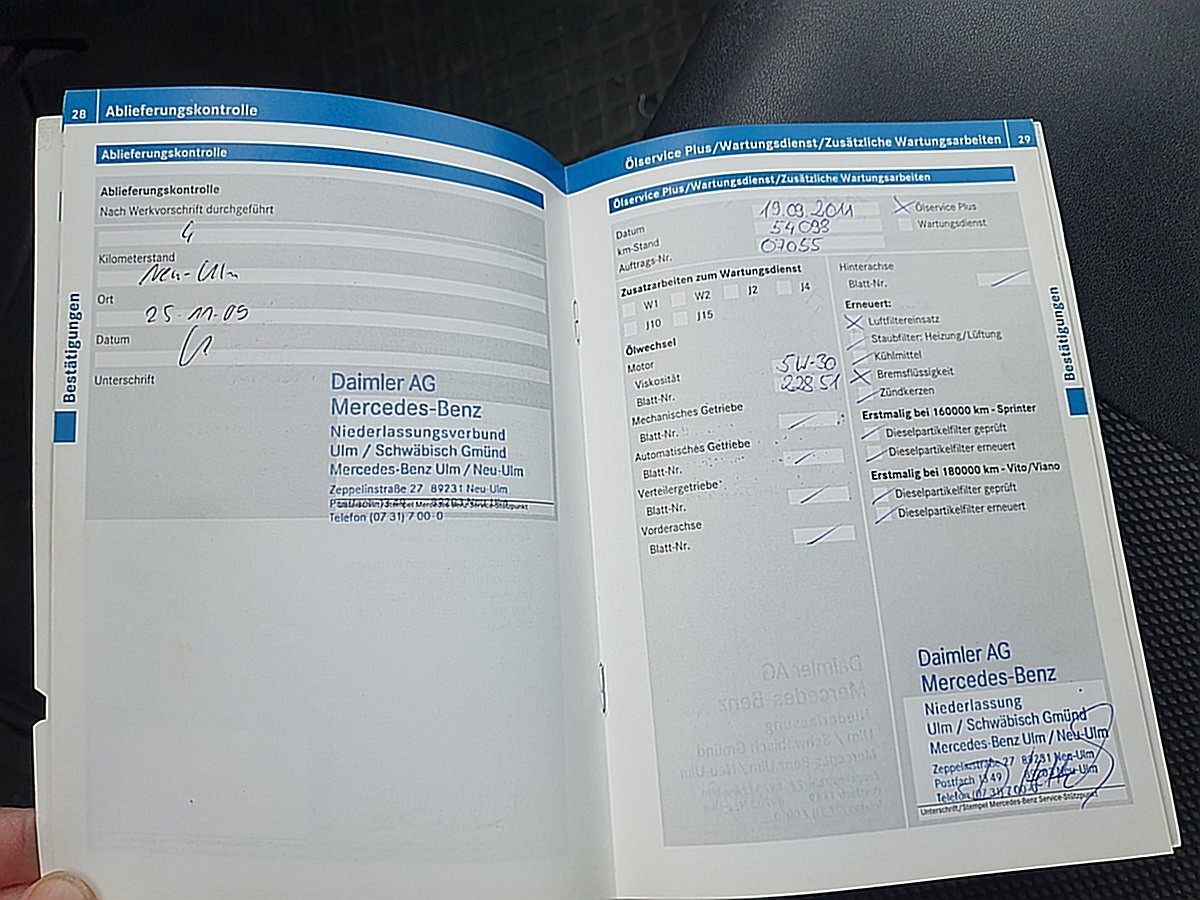 28 Ablieferungskontrolle
Ablieferungskontrolle
Ablieferungskontrolle
Nach Werkvorschrift durchgeführt
4
Kilometerstand
Neu-Ulm
Ort
25-11-09
Datum
Unterschrift
Daimler AG
Mercedes-Benz
Niederlassungsverbund
Ulm / Schwäbisch Gmünd
Mercedes-Benz Ulm / Neu-Ulm
Zeppelinstraße 27 89231 Neu-Ulm
Unterschrift/Stempel Mercedes-Benz Service-Stützpunkt
Telefon (07 31) 7 00-0
Bestätigungen
Ölservice Plus/Wartungsdienst/Zusätzliche Wartungsarbeiten 29
Ölservice Plus/Wartungsdienst/Zusätzliche Wartungsarbeiten
Datum 19.09.2011
km-Stand 54093
Auftrags-Nr. 07055
Ölservice Plus
Wartungsdienst
Zusatzarbeiten zum Wartungsdienst
W1 W2 J2 J4
J10 J15
Ölwechsel
Motor
Viskosität 5W-30
Blatt-Nr. 228 51
Mechanisches Getriebe
Blatt-Nr.
Automatisches Getriebe
Blatt-Nr.
Verteilergetriebe
Blatt-Nr.
Vorderachse
Blatt-Nr.
Hinterachse
Blatt-Nr.
Erneuert:
Luftfiltereinsatz
Staubfilter: Heizung/Lüftung
Kühlmittel
Bremsflüssigkeit
Zündkerzen
Erstmalig bei 160000 km - Sprinter
Dieselpartikelfilter geprüft
Dieselpartikelfilter erneuert
Erstmalig bei 180000 km - Vito/Viano
Dieselpartikelfilter geprüft
Dieselpartikelfilter erneuert
Daimler AG
Mercedes-Benz
Niederlassung
Ulm / Schwäbisch Gmünd
Mercedes-Benz Ulm / Neu-Ulm
Zeppelinstraße 27 89231 Neu-Ulm
Postfach 13 49 Neu-Ulm
Telefon (07 31) 7 00-0
Unterschrift/Stempel Mercedes-Benz Service-Stützpunkt
Bestätigungen